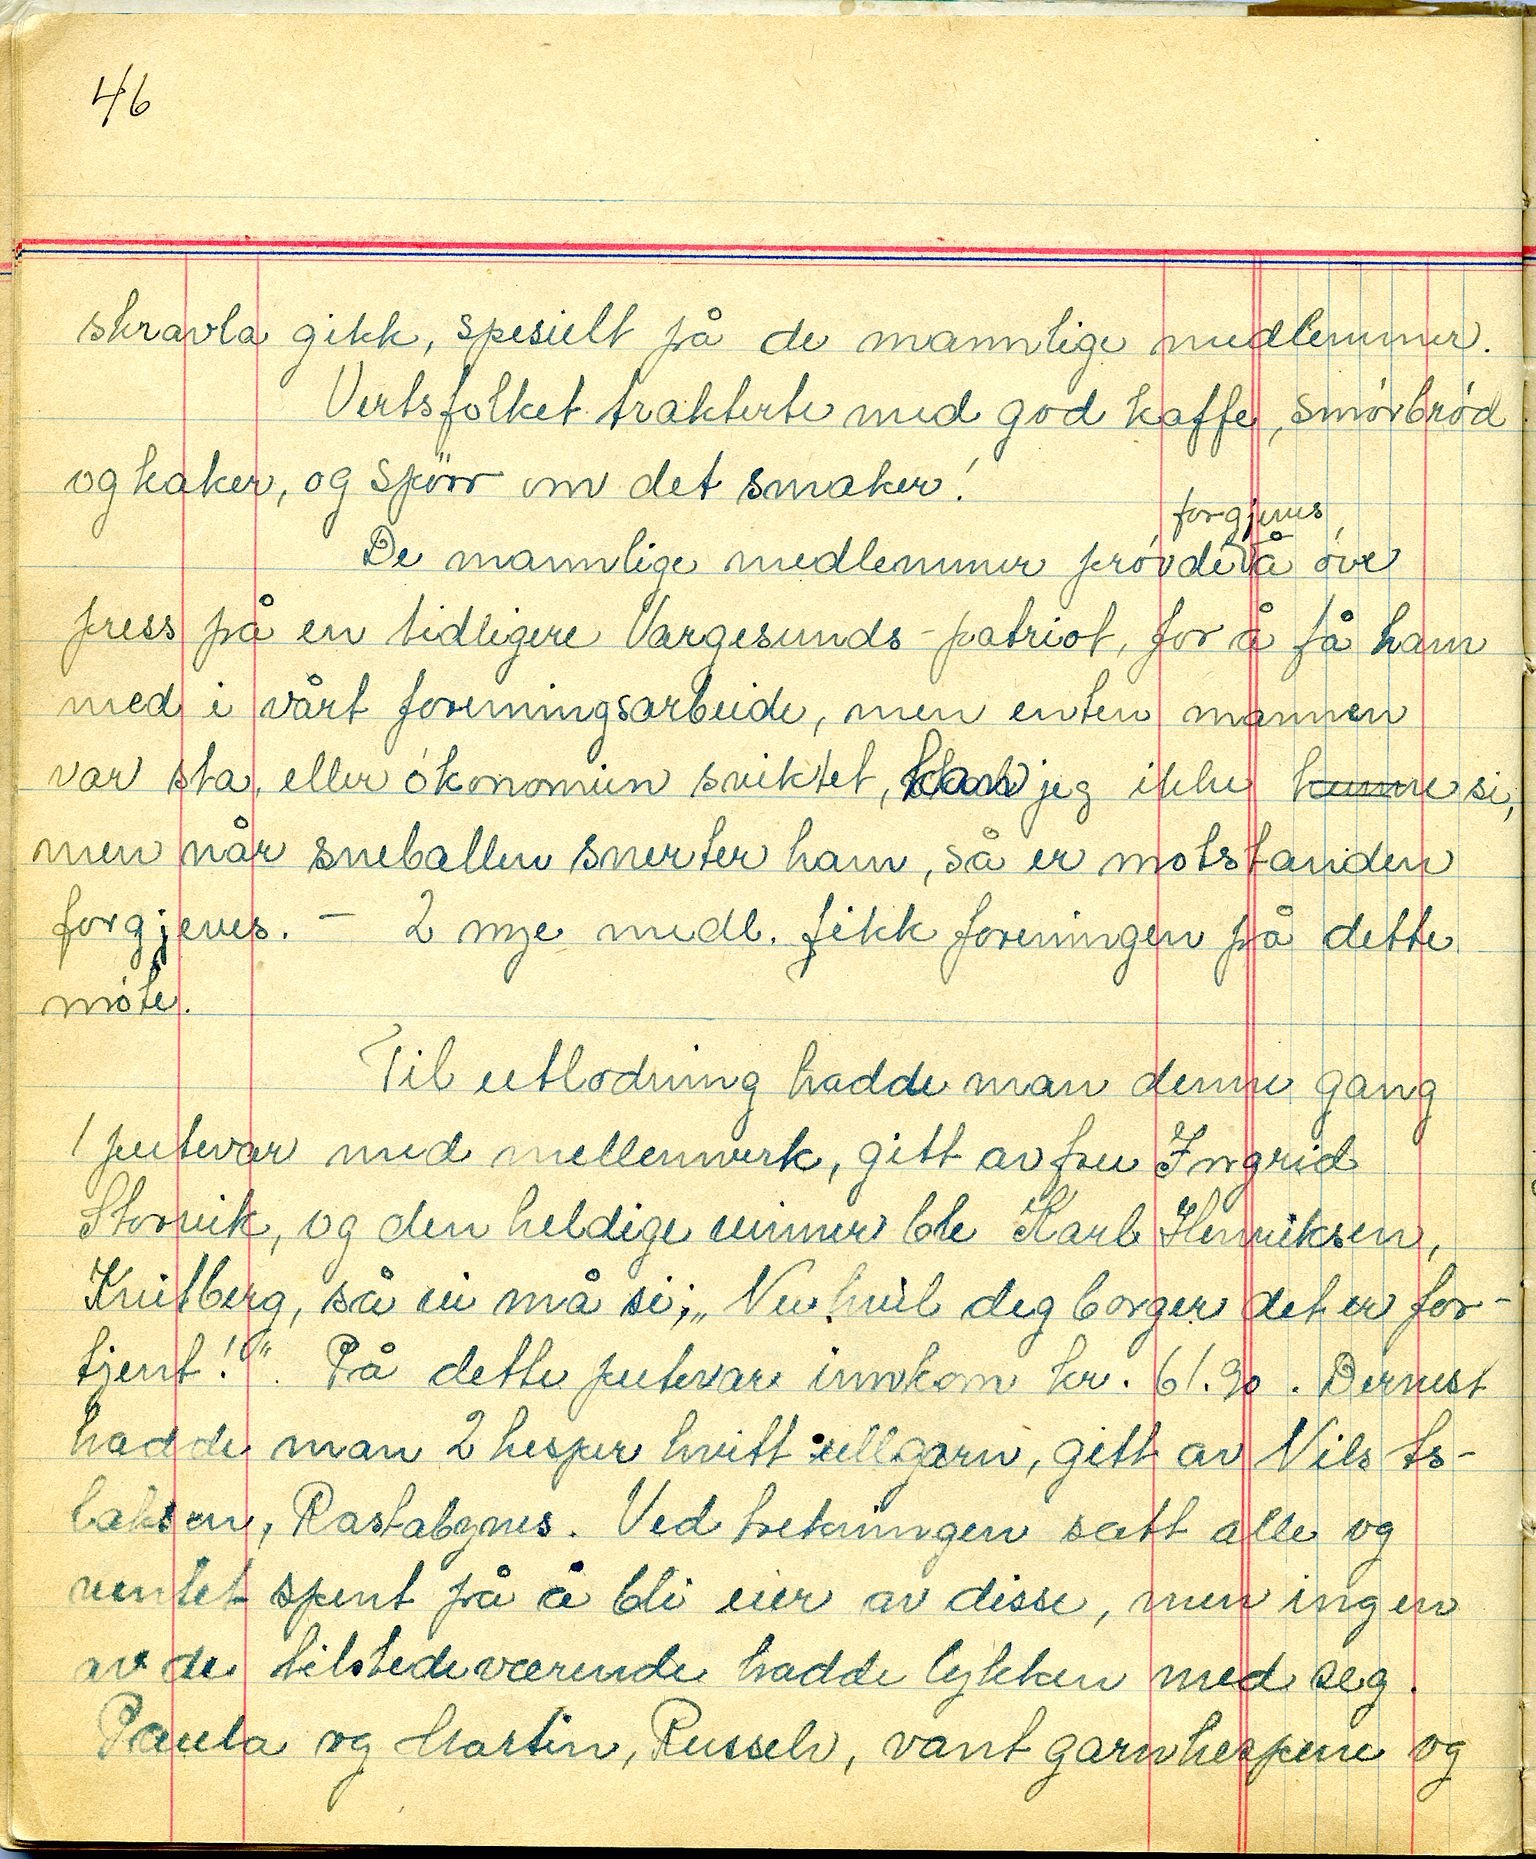 46
skravla gikk, spesielt på de mannlige medlemmer.
Vertsfolket trakterte med god kaffe, smörbröd
og kaker, og spörr om det smaker!
forgjeves
De mannlige medlemmer prövde å öve
press på en tidligere Vargesunds-patriot, for å få ham
med i vårt foreningsarbeide, men enten mannen
var sta, eller ökonomien sviktet, kan jeg ikke kunne si,
men når sneballen snerter ham, så er motstanden
forgjeves. – 2 nye medl. fikk foreningen på dette
möte.
Til utlodning hadde man denne gang
1 putevar med mellemverk, gitt av fru Ingrid
Storvik, og den heldige vinner ble Karl Henriksen,
Kvitberg, så vi må si; „Nu hvil deg borger det er for-
tjent!". På dette putevar innkom kr. 61.90. Dernest
hadde man 2 hesper hvitt ullgarn, gitt av Nils Is-
laksen, Rastabynes. Ved trekningen satt alle og
ventet spent på å bli eier av disse, men ingen
av de tilstedeværende hadde lykken med seg.
Paula og Martin, Russelv, vant garnhespene og